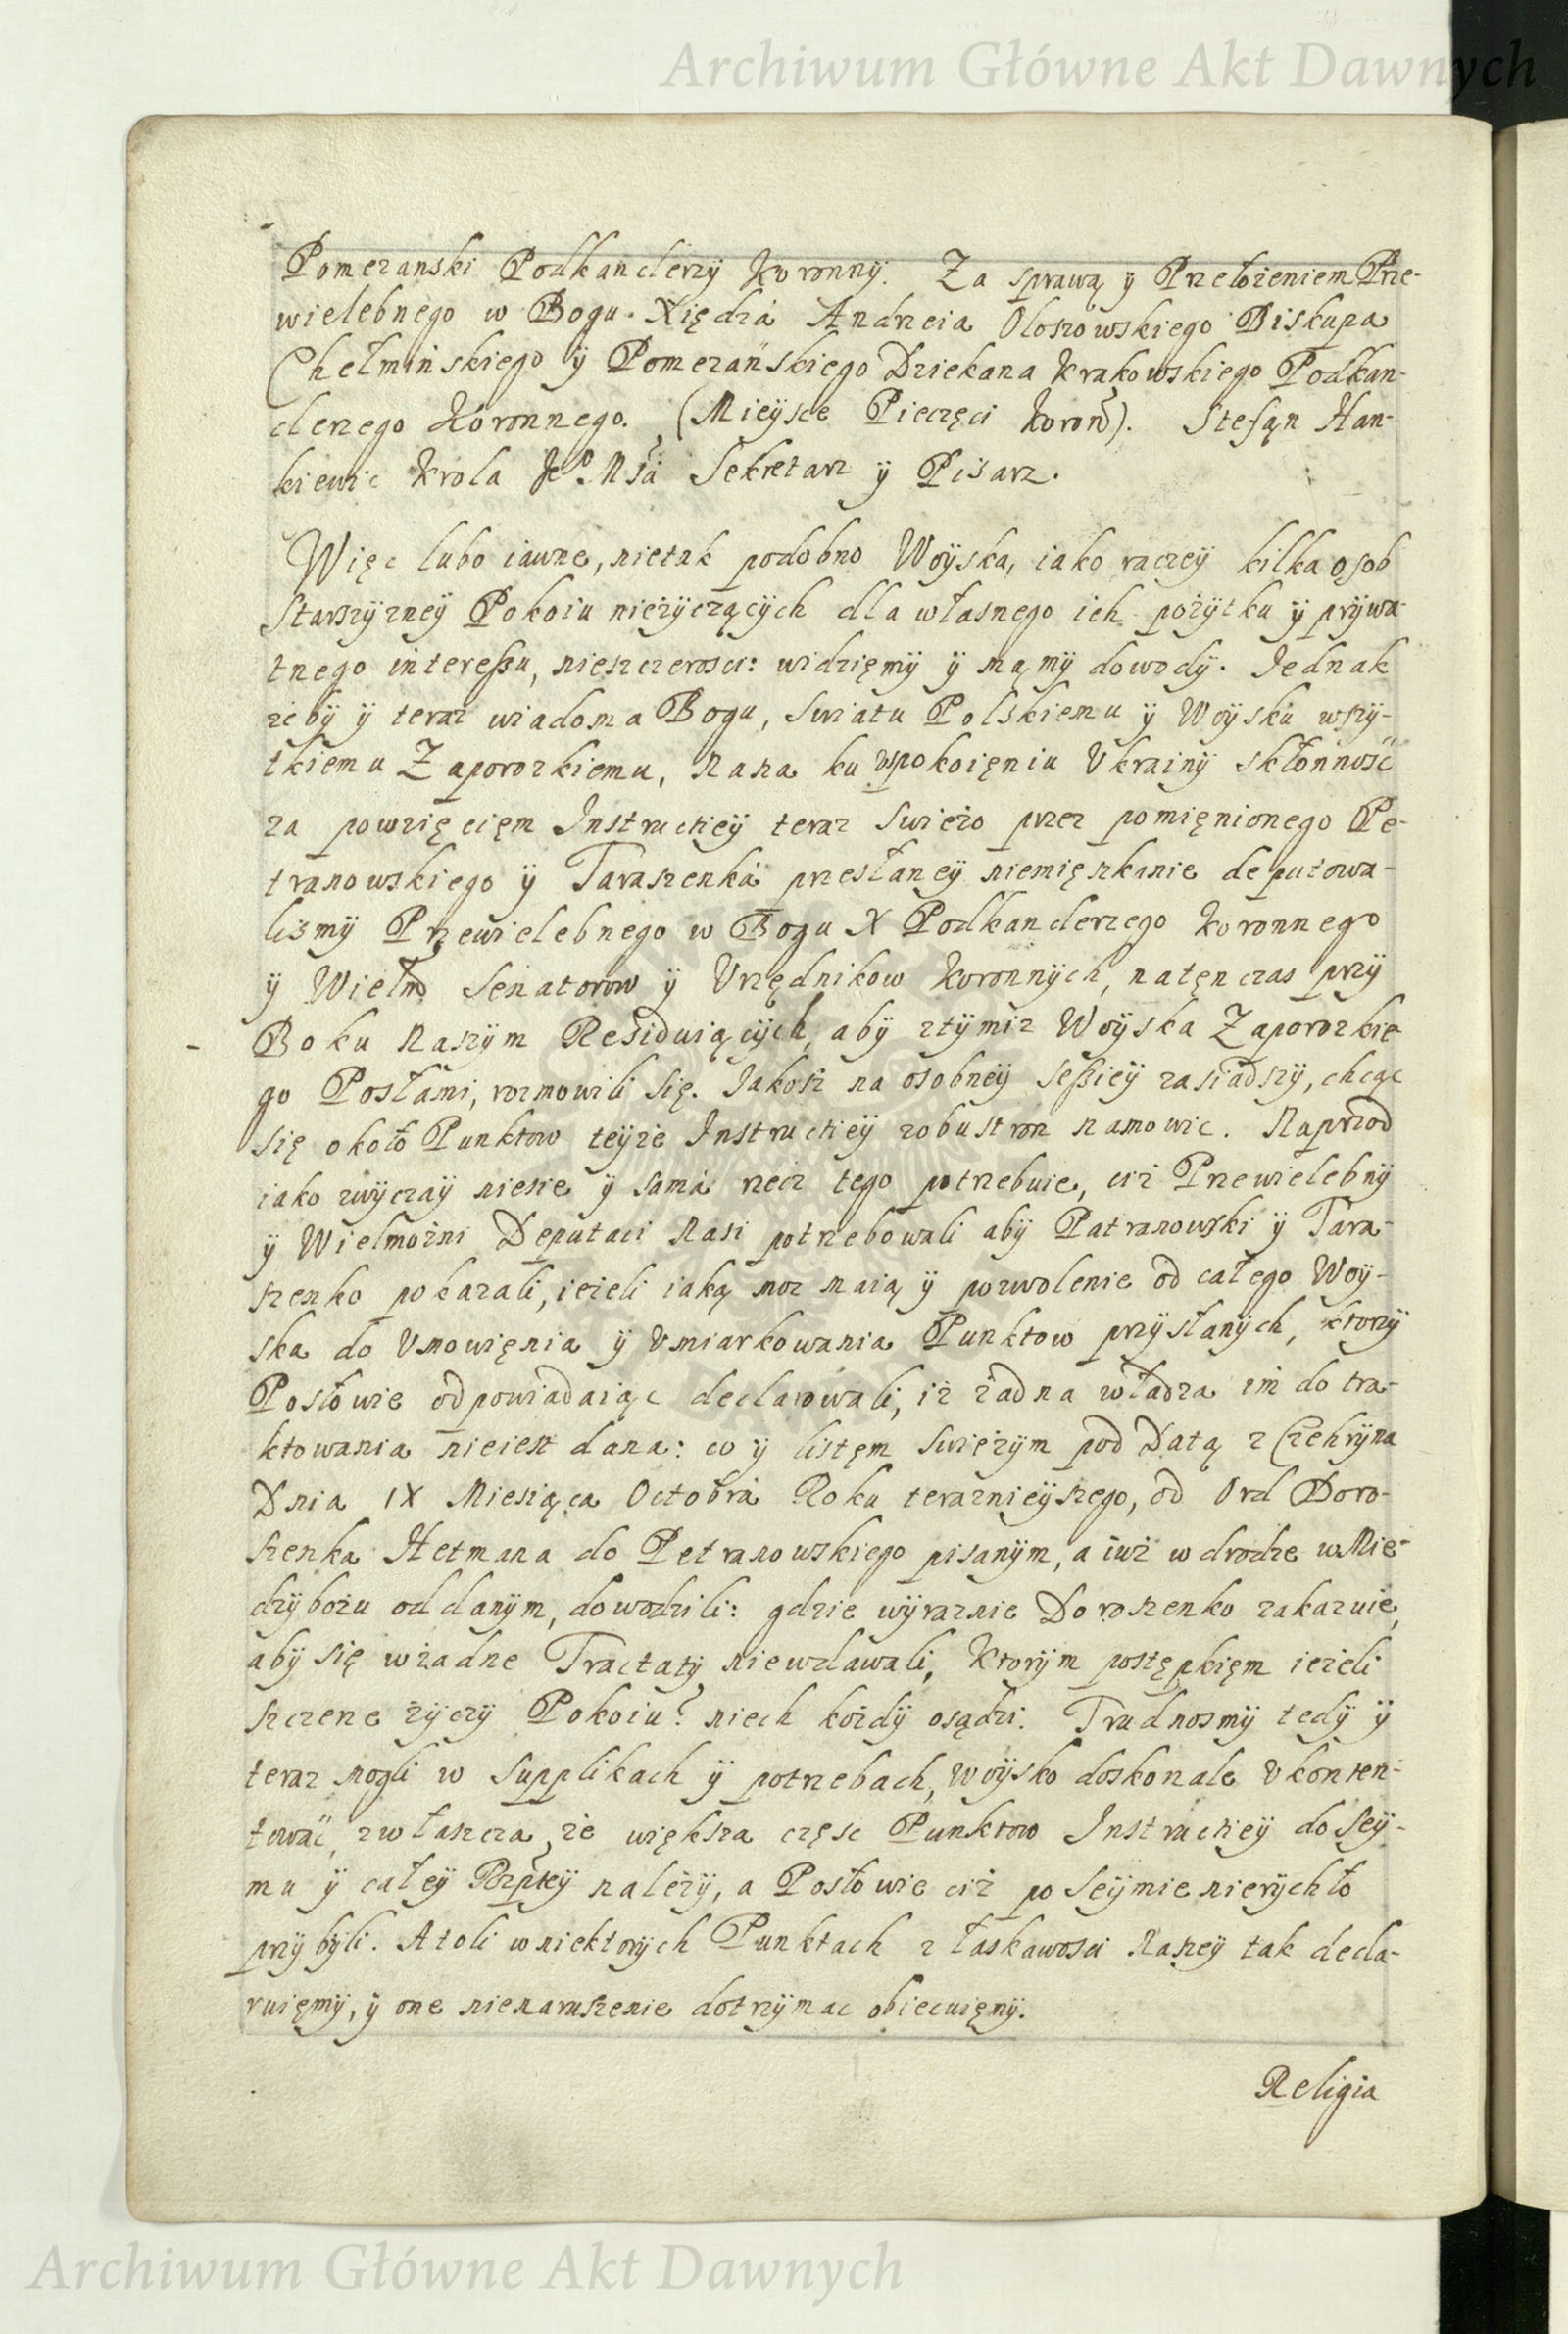 Archiwum Główne Akt Dawnych
Pomezanski Podkanclerzÿ Koronnÿ. Za sprawą y Przełożeniem Prze-
wielebnego w Bogu Xiędza Andrzeia Olszowskiego Biskupa
Chełminskiego ÿ Pomezańskiego Dziekana Krakowskiego Podkan-
clerzego Koronnego. (Mieÿsce Pieczęci Koron). Stefąn Han-
kiewic Krola Je° Msci Sekretarz ÿ Pisarz.
Więc lubo iawne, nietak podobno Woÿska, iako raczeÿ kilka osob
Starszÿzneÿ Pokoiu nieżÿczącÿch dla własnego ich pożÿtku ÿ prÿwa-
tnego interessu, nieszczerosci: widzięmÿ ÿ mąmÿ dowodÿ. Jednak
żebÿ ÿ teraz wiadoma Bogu, Swiatu Polskiemu ÿ Woÿsku wszÿ-
tkiemu Zaporozkiemu, Nasza ku uspokoięniu Ukrainÿ skłonność
za powzięcięm Instructieÿ teraz swieżo przez pomięnionego Pe-
tranowskiego ÿ Taraszenka przesłaneÿ niemięszkanie deputowa-
lismÿ Przewielebnego w Bogu X Podkanclerzego Koronnego
ÿ Wielm Senatorow ÿ Vrzędnikow Koronnÿch, natęnczas przÿ
Boku Naszÿm Residuiącÿch, abÿ ztÿmiz Woÿska Zaporozkie-
go Posłami, rozmowili się. Jakosz na osobneÿ Sessieÿ zasiadszÿ, chcąc
się około Punktow teÿże Instructieÿ zobustron namowic. Naprzod
iako zwÿczaÿ niesie ÿ sama rzecz tego potrzebuie, ciż Przewielebnÿ
ÿ Wielmożni Deputaci Nasi potrzebowali abÿ Patranowski ÿ Tara-
szenko pokazali, ieżeli iaką moc maią ÿ pozwolenie od całego Woÿ-
ska do Vmowięnia ÿ Vmiarkowania Punktow przÿsłanÿch, ktorzÿ
Posłowie odpowiadaiąc declarowali, iż żadna władza im do tra-
ktowania nieiest dana: co ÿ listęm swieżÿm pod Datą z Czehrÿna
Dnia IX Miesiąca Octobra Roku teraznieÿszego, od Vrd Doro-
szenka Hetmana do Petranowskiego pisanÿm, a iuż w drodze w Mie-
dzÿbożu oddanÿm, dowodzili: gdzie wÿraznie Doroszenko zakazuie,
abÿ się wżadne Tractatÿ niewdawali, Ktorÿm postępkięm ieżeli
szczerze żÿczÿ Pokoiu? niech każdÿ osądzi. Trudnosmÿ tedÿ ÿ
teraz mogli w Supplikach ÿ potrzebach, Woÿsko doskonale Vkonten-
tować, zwłaszcza że większa częsc Punktow Instructieÿ do Seÿ-
mu ÿ całeÿ Rzptteÿ należÿ, a Posłowie ciż po Seÿmie nierÿchło
przÿbÿli. Atoli wniektorÿch Punktach z łaskawosci Naszeÿ tak decla-
ruięmÿ, ÿ one nienaruszenie dotrzÿmac obiecuięmÿ.
Religia
Archiwum Główne Akt Dawnych